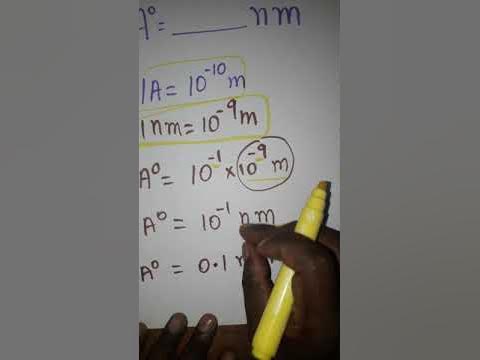 A° = ____ nm
1A = 10⁻¹⁰ m
1nm = 10⁻⁹ m
A° = 10⁻¹ × 10⁻⁹ m
A° = 10⁻¹ nm
A° = 0.1